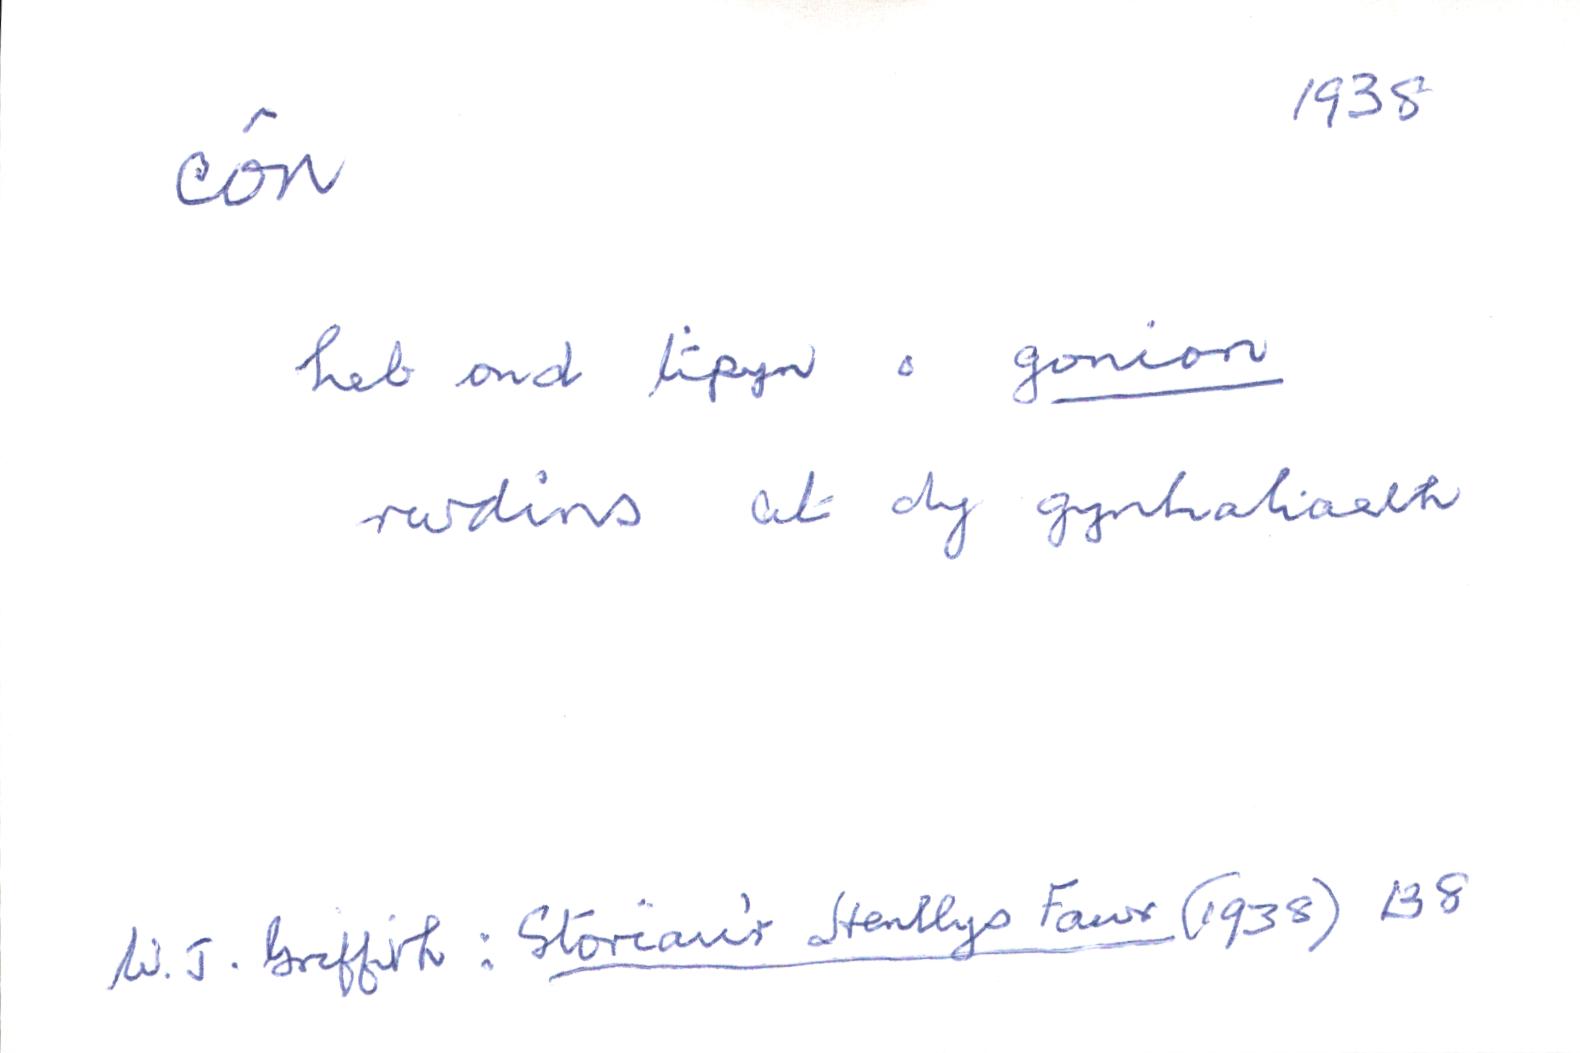 1938
côn
heb ond tipyn o gonion
rwdins at dy gynhaliaeth
W. J. Griffith : Storïau'r Henllys Fawr (1938) 138